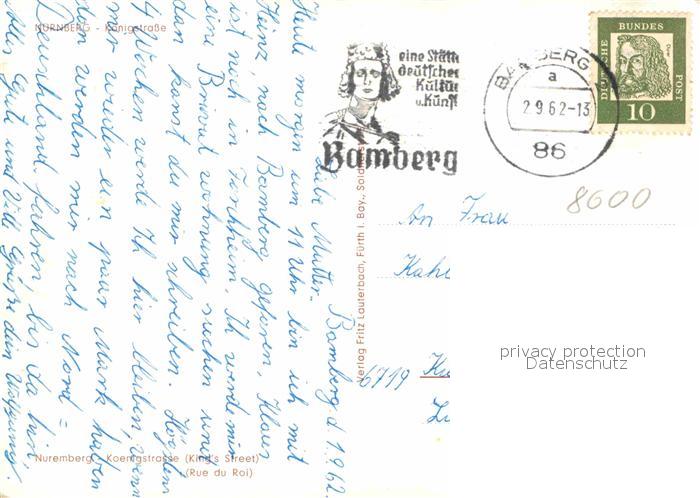 NÜRNBERG - Königstraße
eine Stätte
deutscher
Kultur
u. Kunst
Bamberg
BAMBERG
a
2.9.62-13
86
DEUTSCHE BUNDES POST
Dürer
10
8600
An Frau
Kahe
6719
privacy protection
Datenschutz
Verlag Fritz Lauterbach, Fürth i. Bay.,
Bamberg d. 1.9.62.
Liebe Mutter.
Heute morgen um 11 Uhr bin ich mit
Heinz, nach Bamberg gefaren, Klaus
ist noch in Forchheim, Ih werde mir
eine Brivat wohnung suchen und
dan kanst du mir schreiben. Höchstens
4 Wochen werde Ih hier bleiben, wenn
wir wieder ein paar Mark haben
dan werden wir nach Nord=
Deuschland fahren, bis dahin
alles Gute und Viele Grüße dein Wolfgang.
Nuremberg - Koenigstrasse (King's Street)
(Rue du Roi)